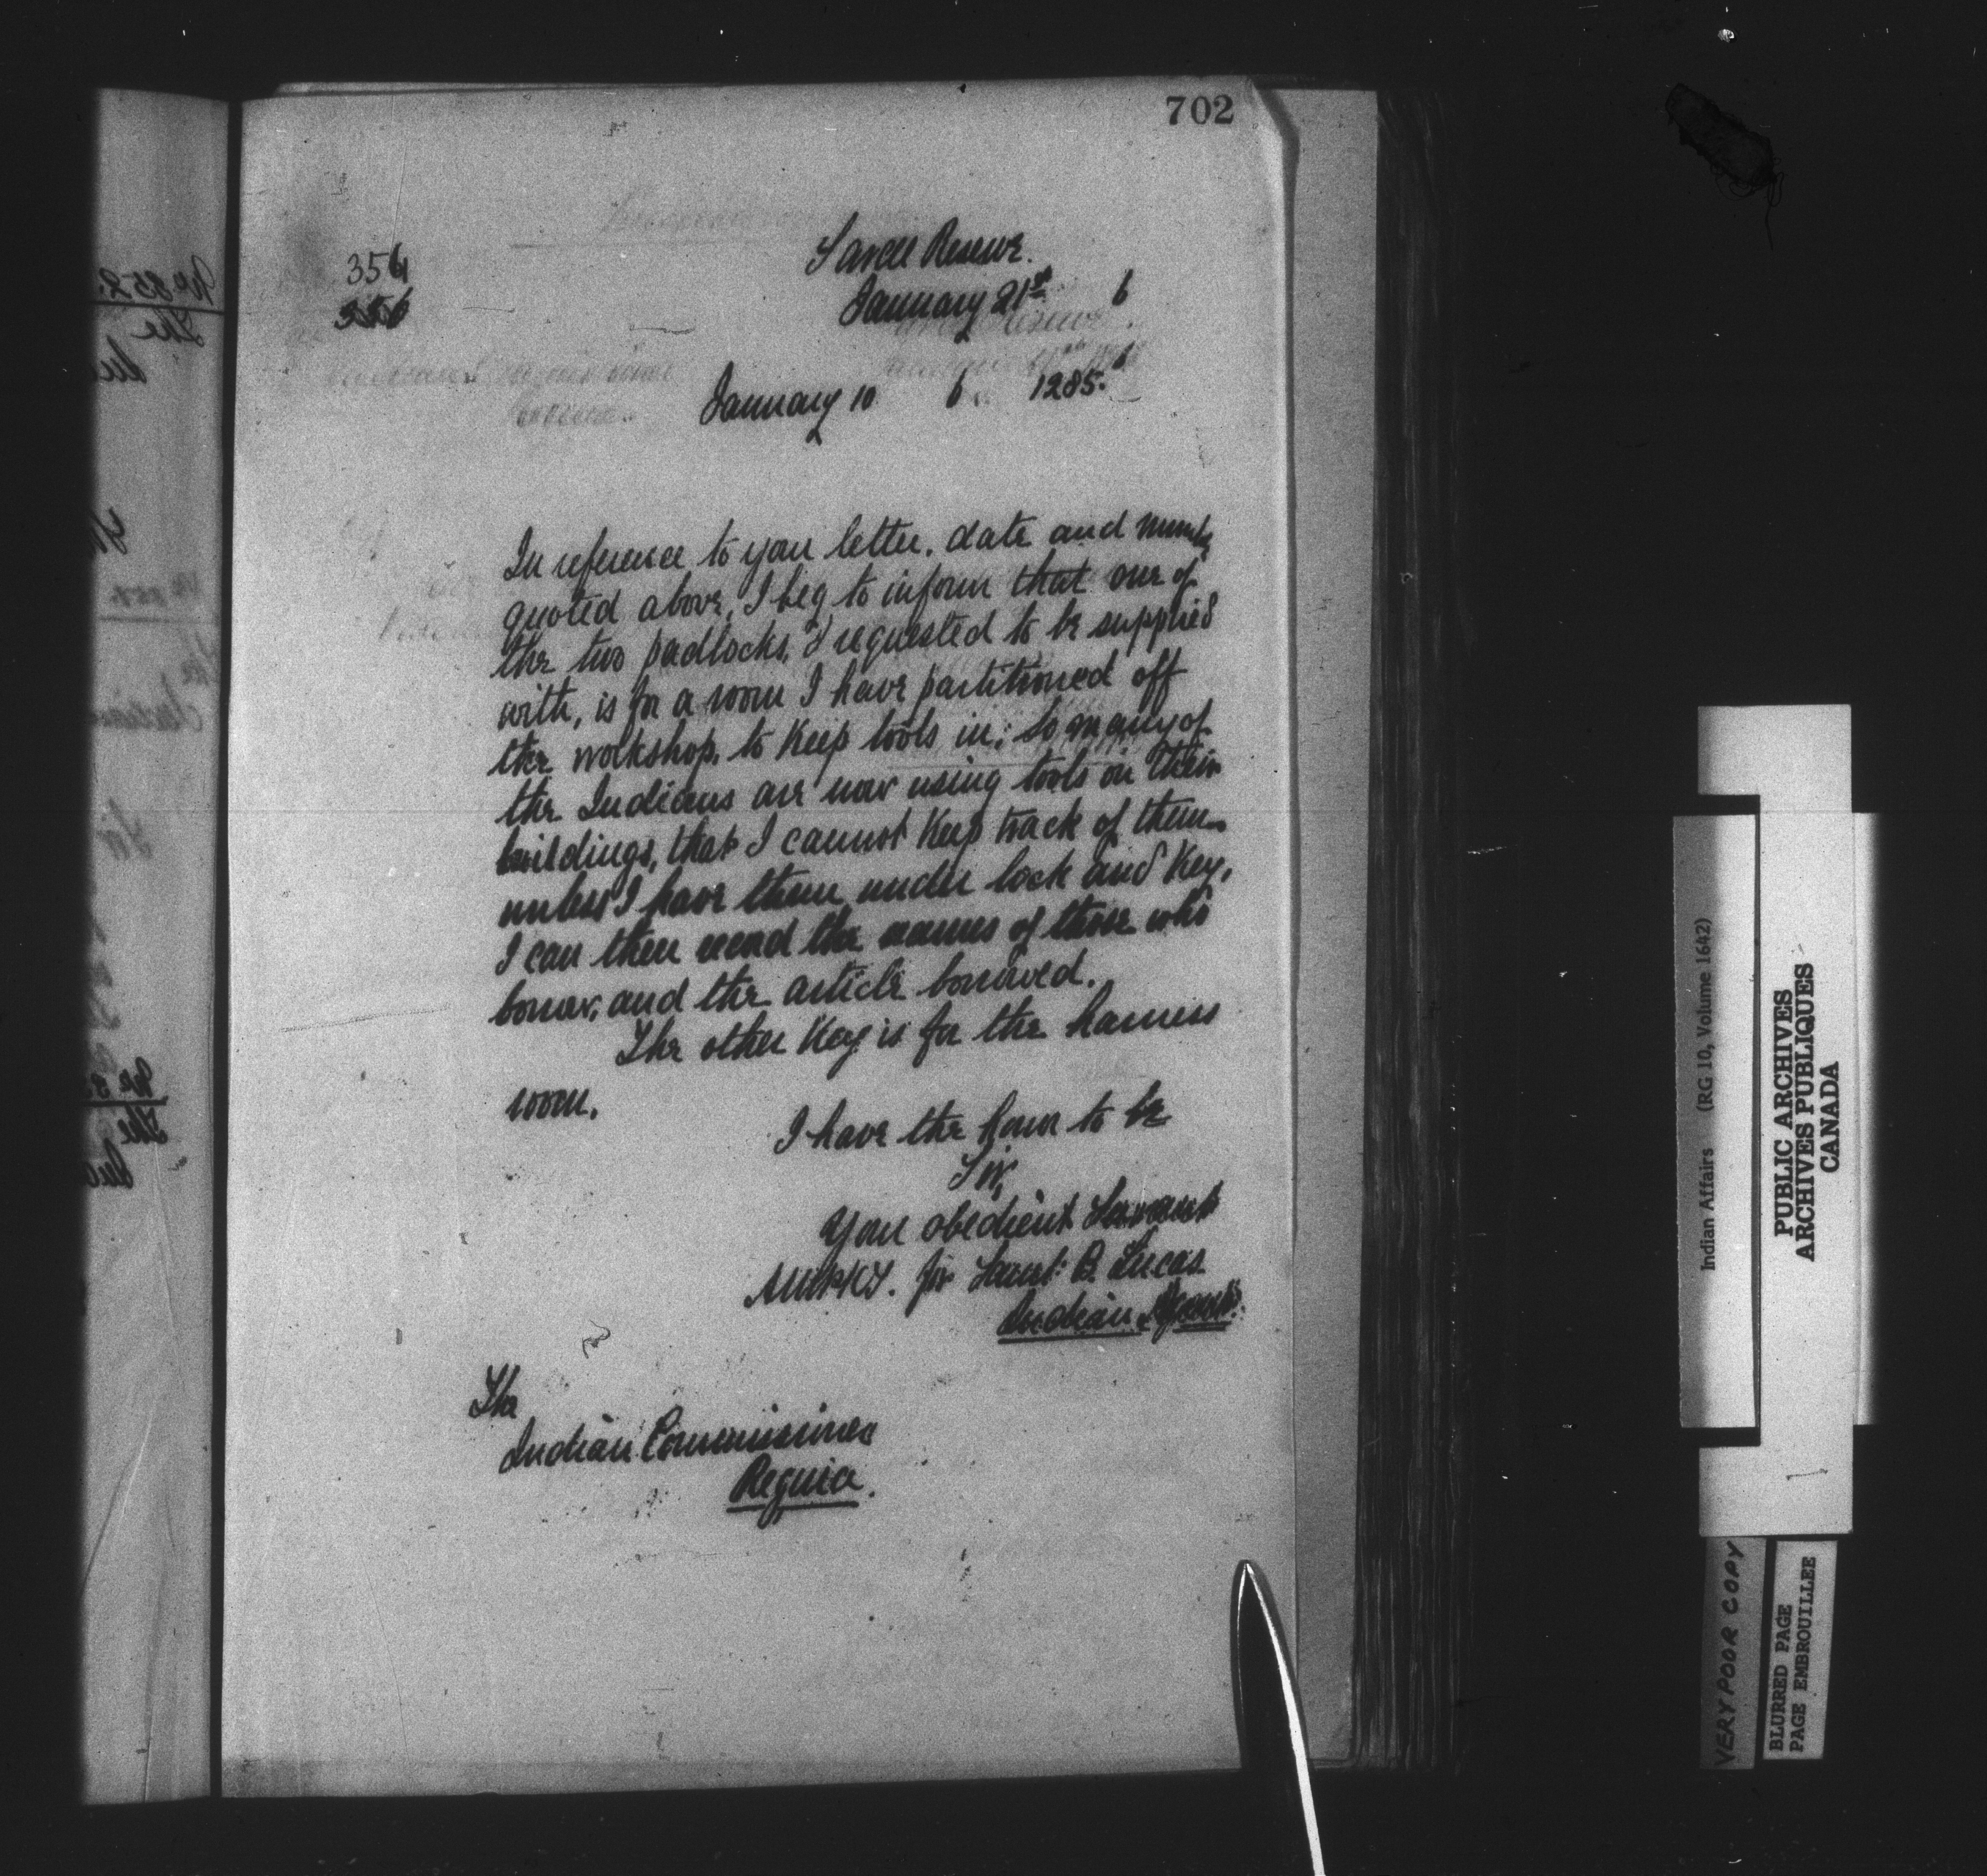 702
354
356
Sarcee Reserve.
January 21st 6
January 10 6 1285.
In reference to your letter, date and number
quoted above, I beg to inform that one of
the two padlocks, I requested to be supplied
with, is for a room I have partitioned off
the workshop, to keep tools in; so many of
the Indians are now using tools on their
buildings, that I cannot keep track of them
unless I have them under lock and key,
I can then record the names of those who
borrow, and the article borrowed.
The other key is for the harness
room.
I have the honor to be
Sir,
Your obedient Servant
for Saml: B. Lucas
Indian Agent.
The
Indian Commissioner
Regina.
Indian Affairs (RG 10, Volume 1642)
PUBLIC ARCHIVES
ARCHIVES PUBLIQUES
CANADA
VERY POOR COPY
BLURRED PAGE
PAGE EMBROUILLEE